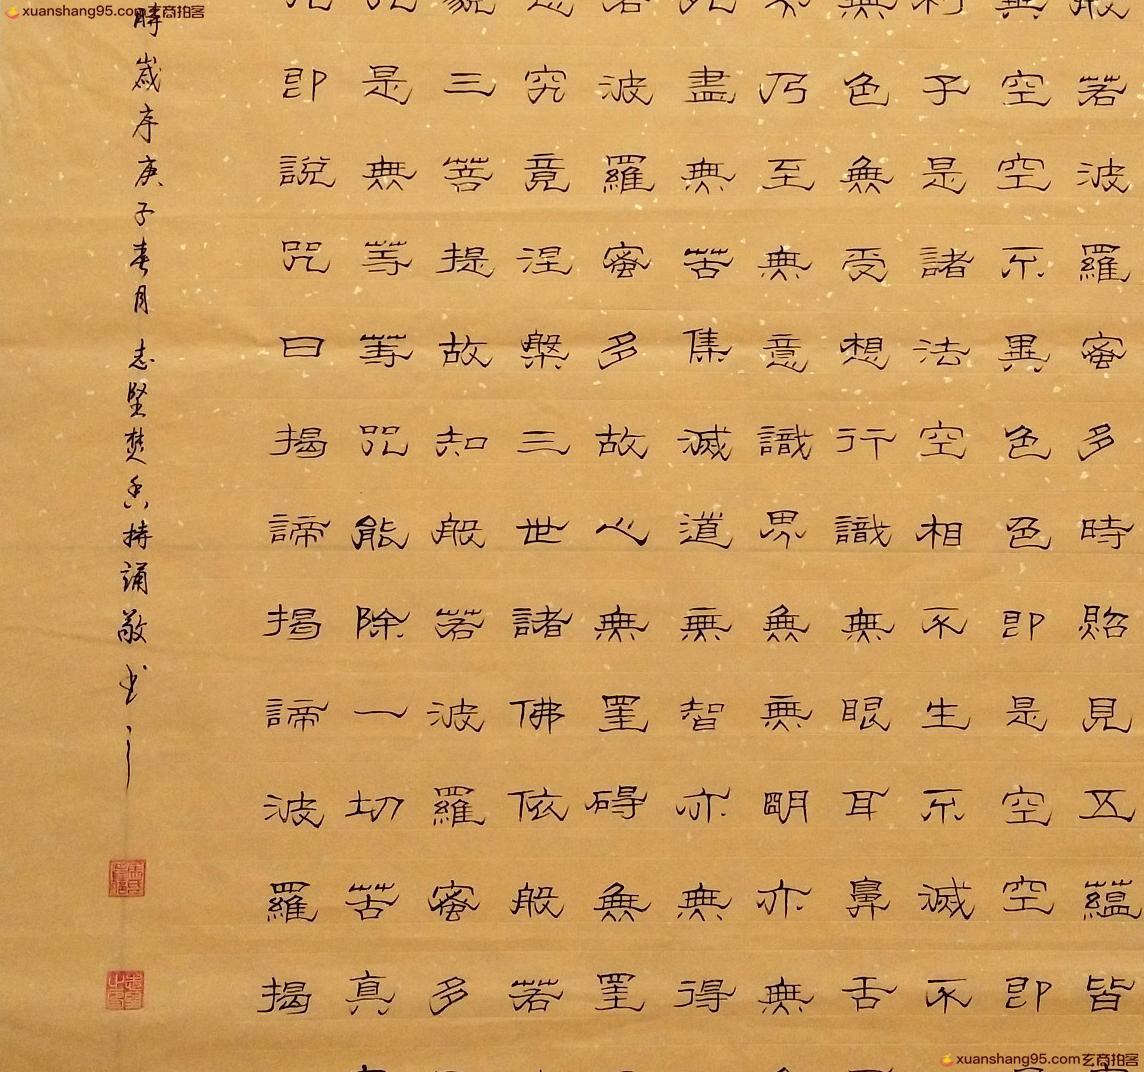 xuanshang95.com玄商拍客
若波羅蜜多時照見五蘊皆
空空不異色色即是空空即
子是諸法空相不生不滅不
色無受想行識無眼耳鼻舌
乃至無意識界無無明亦無
盡無苦集滅道無智亦無得
波羅蜜多故心無罣碍無罣
究竟涅槃三世諸佛依般若
三菩提故知般若波羅蜜多
是無等等咒能除一切苦真
即說咒曰揭諦揭諦波羅揭
時歲序庚子春月志堅焚香持誦敬书之
xuanshang95.com玄商拍客